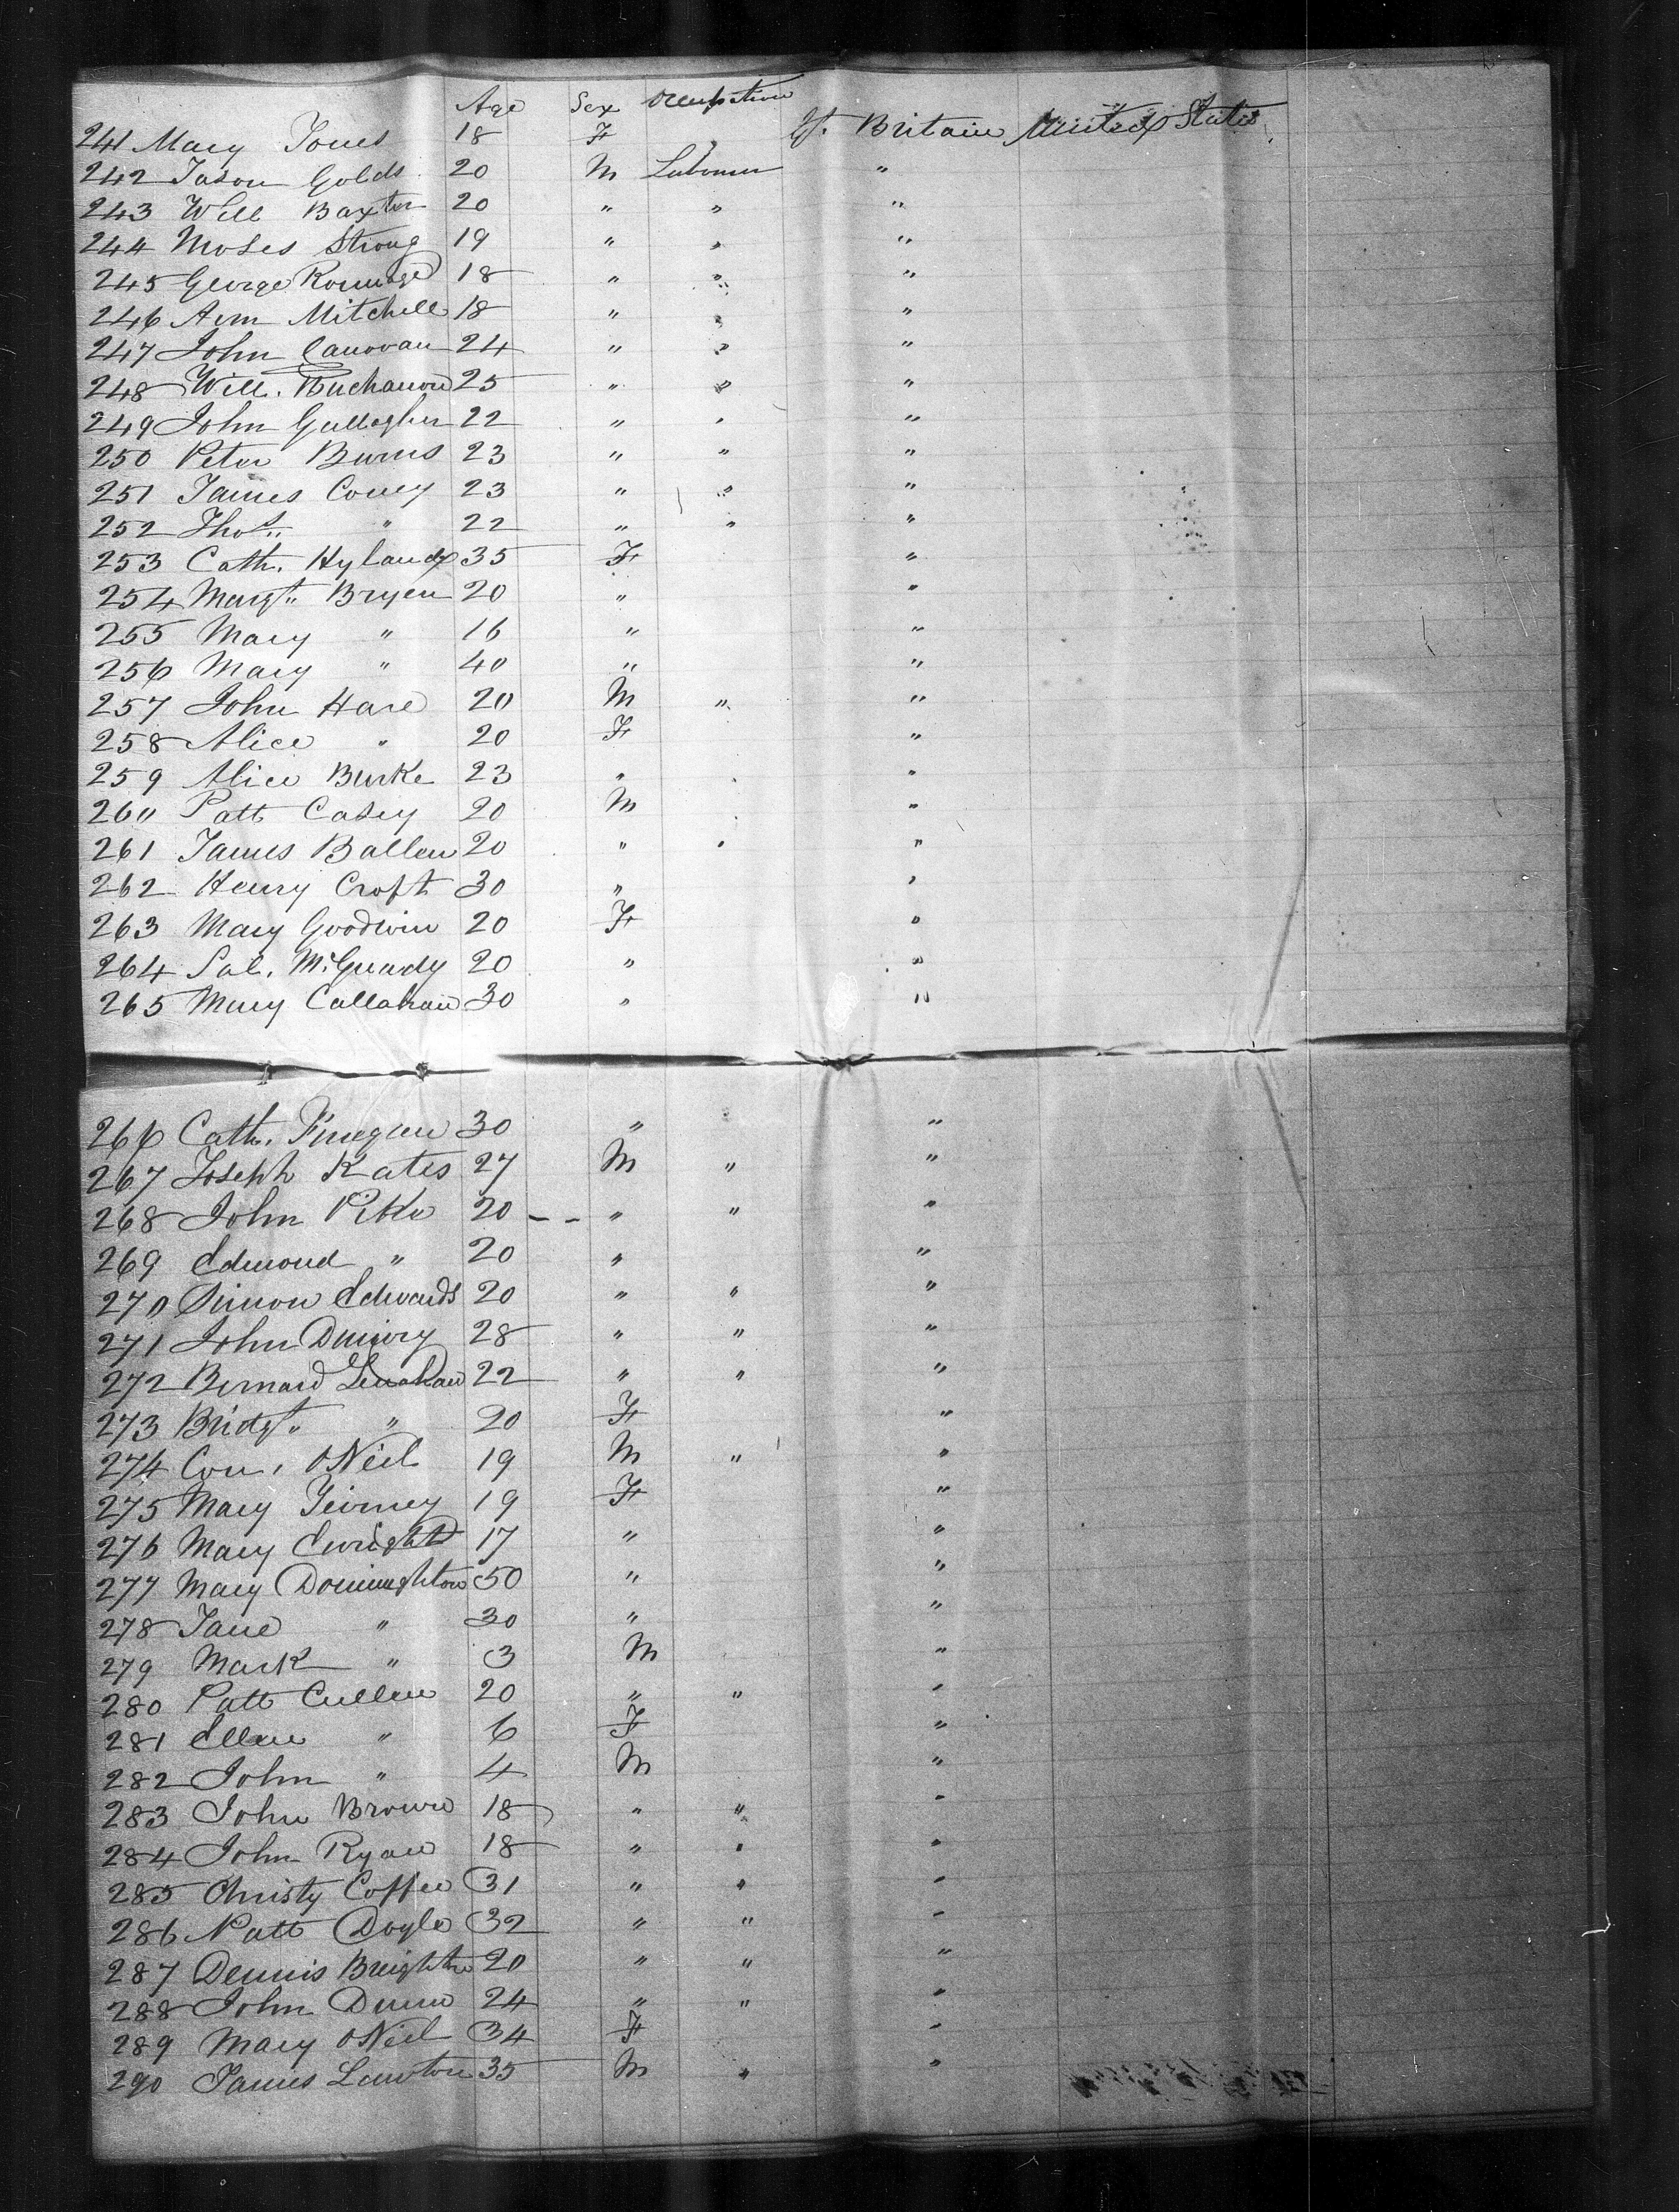 Age Sex Occupation
241 Mary Jones 18 F " Gt. Britain United States
242 Jason Golds 20 M Labourer "
243 Will Baxter 20 " " "
244 Moses Strong 19 " " "
245 George 18 " " "
246 Mitchell 18 " " "
247 John Canovan 24 " " "
248 Will. Buchanon 25 " " "
249 John Gallagher 22 " " "
250 Peter Burns 23 " " "
251 James Coney 23 " " "
252 Thos. " 22 " " "
253 Cath. Hyland 35 F "
254 Margt. Bryen 20 " "
255 Mary " 16 " "
256 Mary " 40 " "
257 John Hare 20 M " "
258 Alice " 20 F "
259 Alice Burke 23 " "
260 Patt Casey 20 M "
261 James Ballen 20 " " "
262 Henry Croft 30 " "
263 Mary Goodwin 20 F "
264 Sal. McGrady 20 " "
265 Mary Callahan 30 " "
266 Cath. Finegan 30 " "
267 Joseph Kates 27 M " "
268 John Pike 20 - - " " "
269 Edmond " 20 " "
270 Simon Edwards 20 " " "
271 John 28 " " "
272 Bernard Lenahan 22 " " "
273 Bridgt. " 20 F "
274 Con. ONeil 19 M " "
275 Mary Teirney 19 F "
276 Mary Enright 17 " "
277 Mary 50 " "
278 Jane " 30 " "
279 Mark " 3 M "
280 Patt Cullen 20 " " "
281 Ellen " 6 F "
282 John " 4 M "
283 John Brown 18 " " "
284 John Ryan 18 " " "
285 Christy Coffee 31 " " "
286 Patt Doyle 32 " " "
287 Dennis 20 " " "
288 John Dunn 24 " " "
289 Mary ONeil 34 F "
290 James Lawton 35 M " "